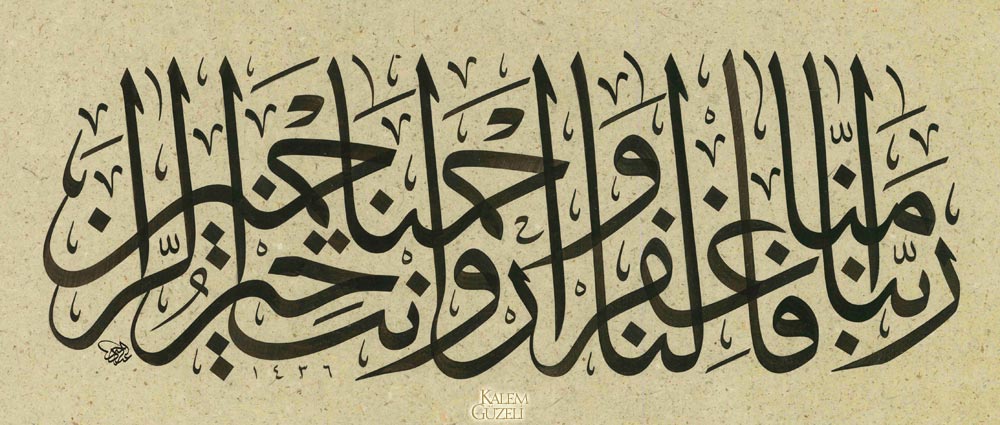 ربنا آمنا فاغفر لنا وارحمنا وأنت خير الراحمين
١٤٣٦
KALEM
GÜZELİ